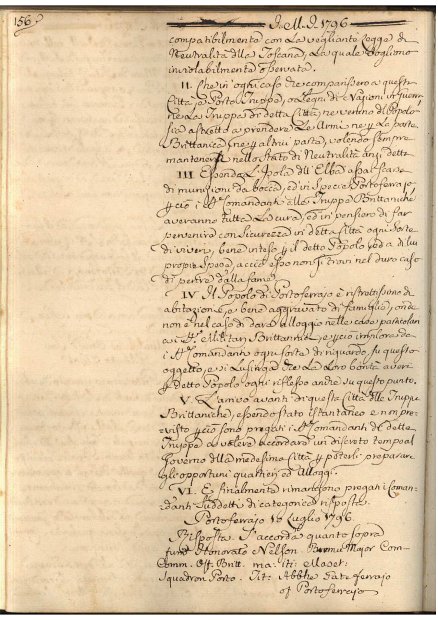 156
I. M. I. 1796
compatibilmente con La vegliante Legge di
Neutralità della Toscana, La quale vogliono
inviolabilmente osservata.
II. Che in ogni caso che comparissero a questa
Città, e Porto Truppe, o Legni di Nazioni
ne La Truppa di detta Città, ne verino di Popolo
sia astretto a prendere Le Armi ne p La parte
Brittanica, ne p altri parti, volendo sempre
mantenersi nello stato di Neutralità anzi detta
III Essendo L'Isola dell'Elba assai scarsa
di munizioni da bocca, ed in specie Portoferrajo
p ciò i SSri Comandanti alle Truppe Brittaniche
averanno tutta La cura, ed in pensiero di far
pervenire con sicurezza in detta Città ogni sorte
di viveri, bene inteso p il detto Popolo ed a di lui
proprie spese, acciò esso non si trovi nel duro caso
di perire dalla fame.
IV. Il Popolo di Portoferrajo è ristrettissimo di
abitazione, e bene aggravato di famiglie, onde
non è nel caso di dare alloggio nelle case particolari
ai SSri Militari Brittanni, e p ciò implora da
i SSri Comandanti ogni sorta di riguardo su questo
oggetto, e si Lusinga che La Loro bontà averà
p detto Popolo ogni riflesso anche su questo punto.
V. L'arrivo avanti di questa Città delle Truppe
Brittaniche, essendo stato istantaneo e non pre-
visto p ciò sono pregati i SSri Comandanti di dette
Truppe a volere accordare un discreto tempo al
Governo della medesima Città p poterli preparare
gli opportuni quartieri ed alloggi.
VI. E finalmente rimangono pregati i Coman-
danti suddetti di categorica risposta.
Portoferrajo 10 Luglio 1796
Risposta. S'accorda quanto sopra
Honorato Nelson. Major Com-
Comm. Off. Britt.
Squadron Porto.
of Portoferrajo